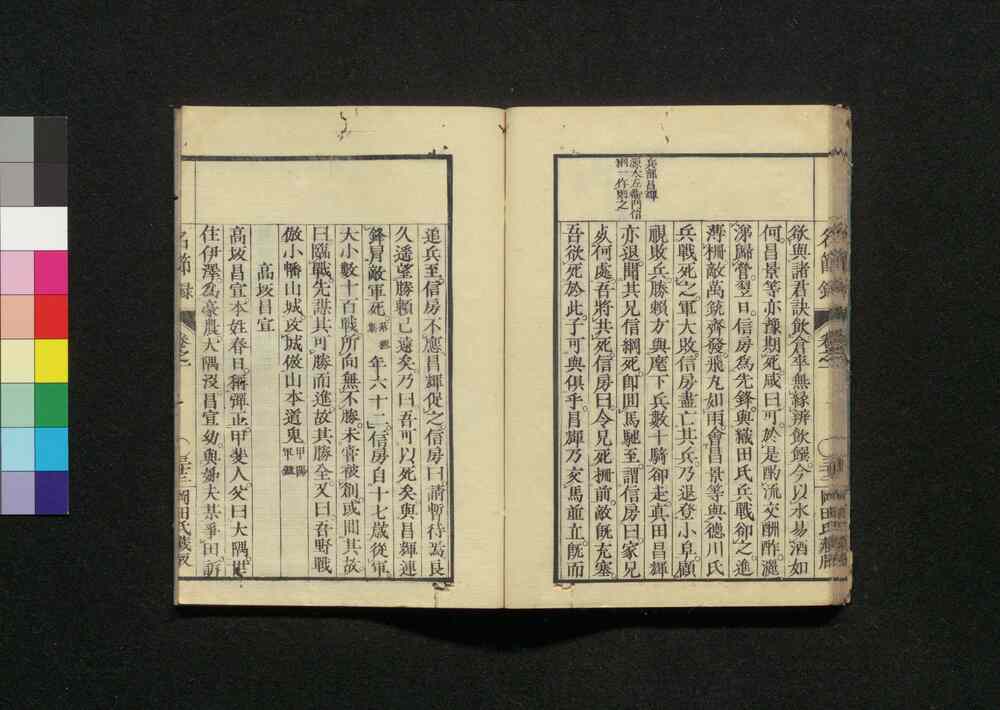 欲與諸君訣飲倉卒無緣辨飲饌今以水易酒如
何昌景等亦豫期死咸曰可於是酌流交酬酢灑
涕歸營翌日信房為先鋒與織田氏兵戰卻之進
薄柵敵萬銃齊發飛丸如雨會昌景等與德川氏
兵戰死之軍大敗信房盡亡其兵乃退登小阜顧
視敗兵勝賴方與麾下兵數十騎卻走真田昌輝
亦退聞其兄信綱死即回馬馳至謂信房曰家兄
死何處吾將共死信房曰令兄死柵前敵既充塞
吾欲死於此子可與俱乎昌輝乃交馬並立既而
兵部昌輝
源太左衛門信
綱一作
追兵至信房不應昌輝促之信房曰請暫待為良
久遙望勝賴已遠矣乃曰吾可以死矣與昌輝連
鋒冒敵軍死年六十二信房自十七歲從軍
大小數十百戰所向無不勝未嘗被創或問其故
曰臨戰先謀其可勝而進故其勝全又曰吾野戰
倣小幡山城攻城倣山本道鬼甲陽軍鑑
高坂昌宣
高坂昌宣本姓春日稱彈正甲斐人父曰大隅
住伊澤為豪農大隅沒昌宣幼與姊夫某爭田訴
名節錄
卷之一
岡田氏藏版